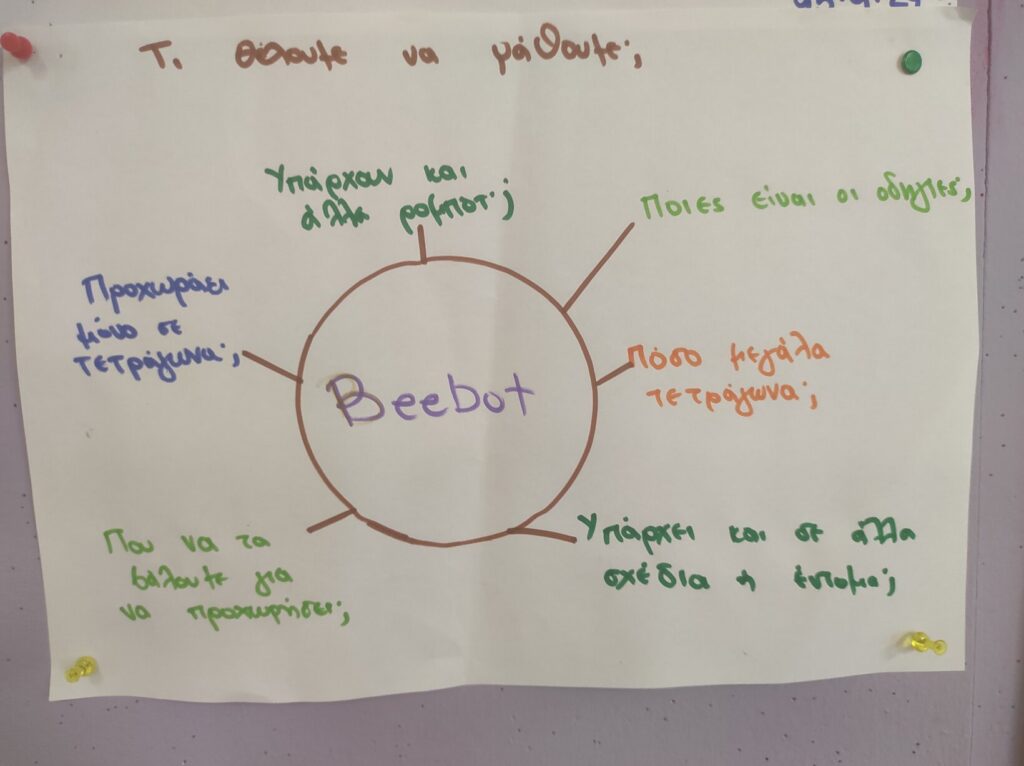 Τι θέλουμε να μάθουμε;
Υπάρχουν και
άλλα ρομποτ;
Ποιες είναι οι οδηγίες;
Προχωράει
μόνο σε
τετράγωνα;
Πόσο μεγάλα
τετράγωνα;
Beebot
Που να τα
βάλουμε για
να προχωρήσει;
Υπάρχει και σε άλλα
σχέδια ή έντομα;